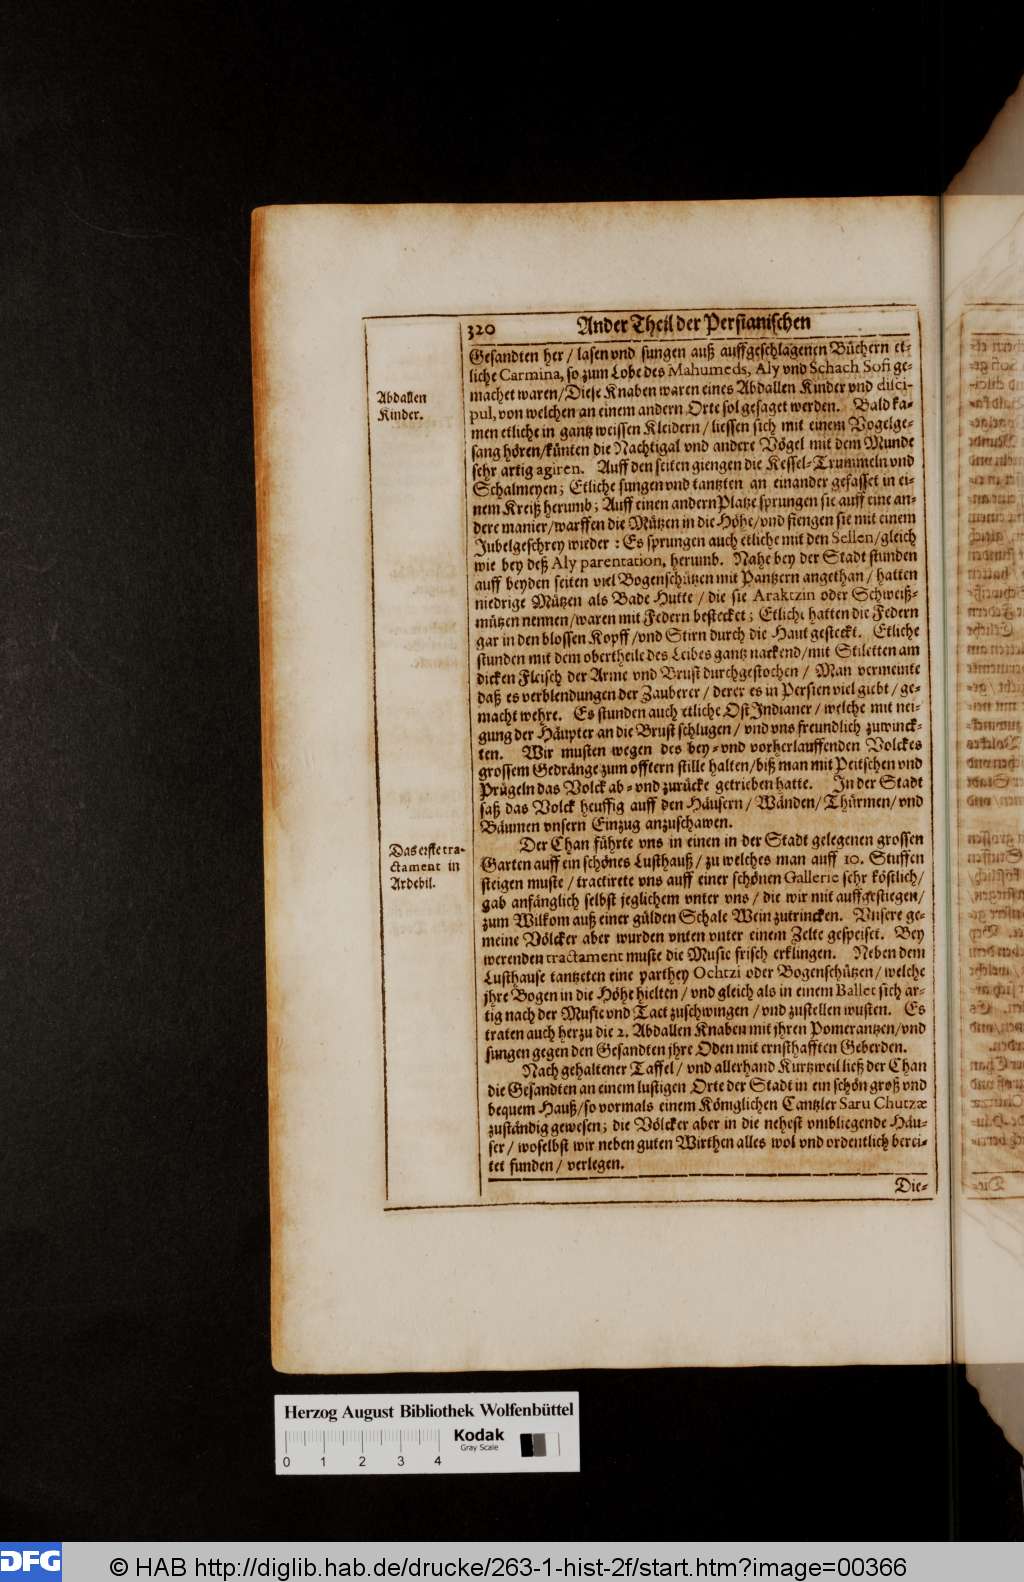 320 Ander Theil der Persianischen
Gesandten her / lasen vnd sungen auß auffgeschlagenen Büchern et-
liche Carmina, so zum Lobe des Mahumeds, Aly vnd Schach Sofi ge-
machet waren / Diese Knaben waren eines Abdallen Kinder vnd disci-
pul, von welchen an einem andern Orte sol gesaget werden. Bald ka-
men etliche in gantz weissen Kleidern / liessen sich mit einem Vogelge-
sang hören / künten die Nachtigal vnd andere Vögel mit dem Munde
sehr artig agiren. Auff den seiten giengen die Kessel-Trummeln vnd
Schalmeyen; Etliche sungen vnd tantzten an einander gefasset in ei-
nem Kreiß herumb; Auff einen andern Platze sprungen sie auff eine an-
dere manier / warffen die Mützen in die Höhe / vnd fiengen sie mit einem
Jubelgeschrey wieder : Es sprungen auch etliche mit den Sellen / gleich
wie bey deß Aly parentation, herumb. Nahe bey der Stadt stunden
auff beyden seiten viel Bogenschützen mit Pantzern angethan / hatten
niedrige Mützen als Bade Hutte / die sie Araktzin oder Schweiß-
mützen nennen / waren mit Federn bestecket; Etliche hatten die Federn
gar in den blossen Kopff / vnd Stirn durch die Haut gesteckt. Etliche
stunden mit dem obertheile des Leibes gantz nackend / mit Stiletten am
dicken Fleisch der Arme vnd Brust durchgestochen / Man vermeinte
daß es verblendungen der Zauberer / derer es in Persien viel giebt / ge-
macht wehre. Es stunden auch etliche Ost Indianer / welche mit nei-
gung der Häupter an die Brust schlugen / vnd vns freundlich zuwinck-
ten. Wir musten wegen des bey- vnd vorherlauffenden Volckes
grossem Gedränge zum offtern stille halten / biß man mit Peitschen vnd
Prügeln das Volck ab- vnd zurücke getrieben hatte. In der Stadt
saß das Volck heuffig auff den Häusern / Wänden / Thürmen / vnd
Bäumen vnsern Einzug anzuschawen.
Der Chan führte vns in einen in der Stadt gelegenen grossen
Garten auff ein schönes Lusthauß / zu welches man auff 10. Stuffen
steigen muste / tractirete vns auff einer schönen Gallerie sehr köstlich /
gab anfänglich selbst jeglichem vnter vns / die wir mit auffgestiegen /
zum Wilkom auß einer gülden Schale Wein zutrincken. Vnsere ge-
meine Völcker aber wurden vnten vnter einem Zelte gespeiset. Bey
werenden tractament muste die Music frisch erklingen. Neben dem
Lusthause tantzeten eine parthey Ochtzi oder Bogenschützen / welche
jhre Bogen in die Höhe hielten / vnd gleich als in einem Ballet sich ar-
tig nach der Music vnd Tact zuschwingen / vnd zustellen wusten. Es
traten auch herzu die 2. Abdallen Knaben mit jhren Pomerantzen / vnd
sungen gegen den Gesandten jhre Oden mit ernsthafften Geberden.
Nach gehaltener Taffel / vnd allerhand Kurtzweil ließ der Chan
die Gesandten an einem lustigen Orte der Stadt in ein schön groß vnd
bequem Hauß / so vormals einem Königlichen Cantzler Saru Chutzæ
zuständig gewesen; die Völcker aber in die nehest vmbliegende Häu-
ser / woselbst wir neben guten Wirthen alles wol vnd ordentlich berei-
tet funden / verlegen.
Die-
Abdallen
Kinder.
Das erste tra-
ctament in
Ardebil.
Herzog August Bibliothek Wolfenbüttel
Kodak
Gray Scale
0 1 2 3 4
DFG
© HAB http://diglib.hab.de/drucke/263-1-hist-2f/start.htm?image=00366